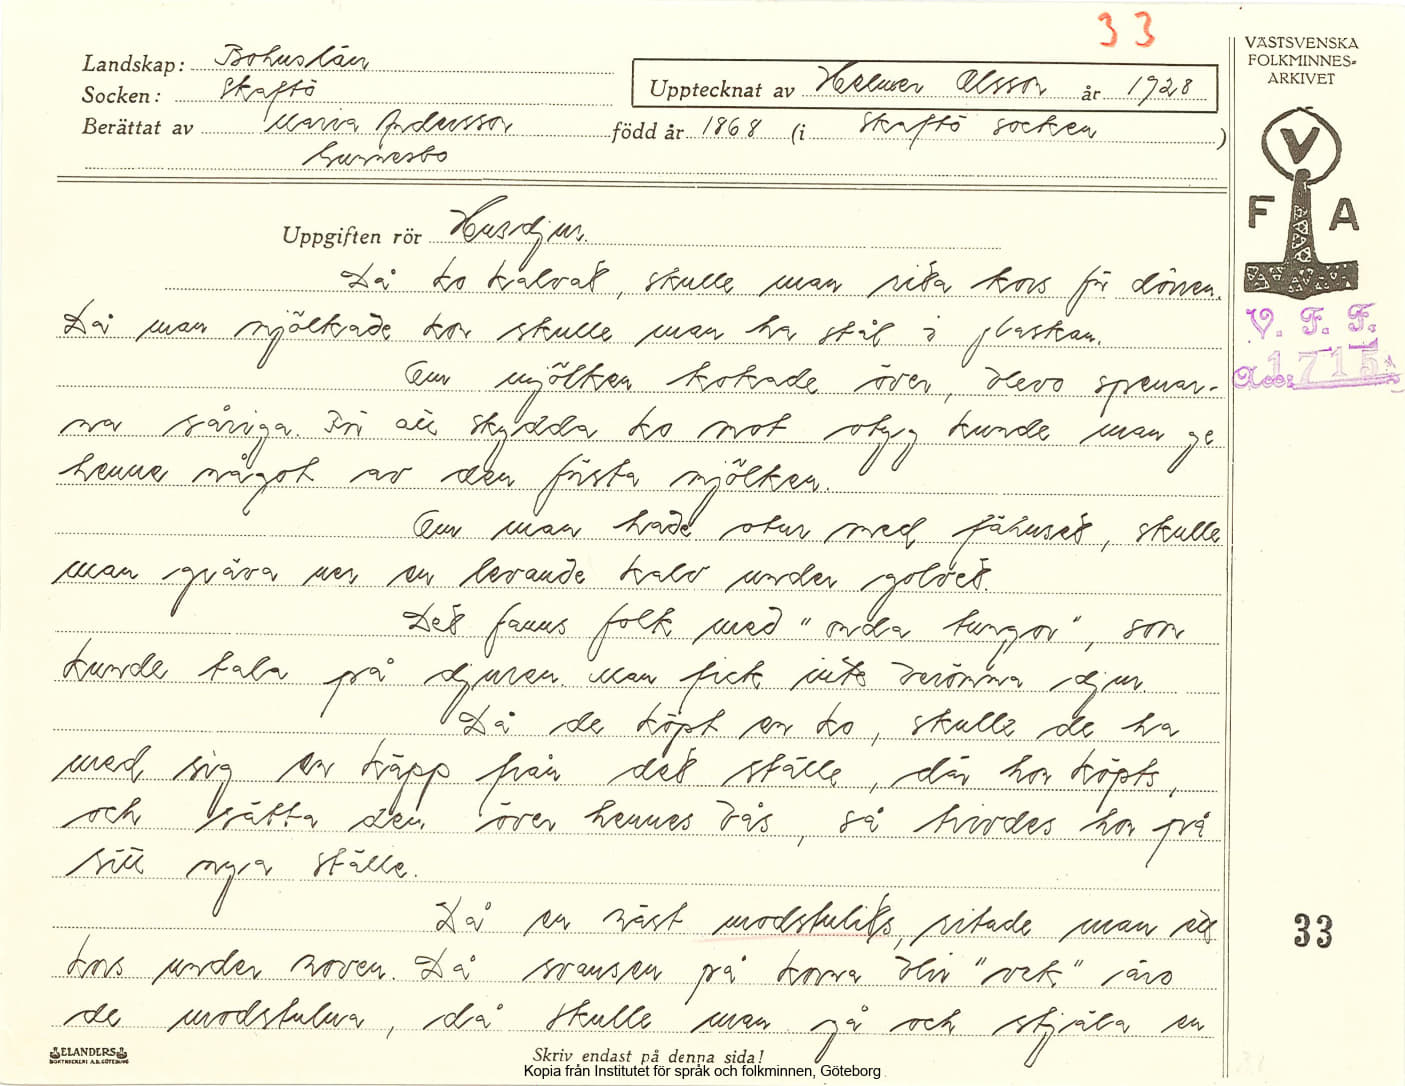 33
VÄSTSVENSKA
FOLKMINNES-
ARKIVET
Landskap: Bohuslän
Socken: Skaftö
Upptecknat av Helmer Olsson år 1928
Berättat av Maria Andersson född år 1868 (i Skaftö socken )
Gunnesbo
V
F A
Uppgiften rör Husdjur.
Då ko kalvat, skulle man rita kors för dörren.
Då man mjölkade kor skulle man ha stål i flaskan.
V. F. F.
Acc: 1715
Om mjölken kokade över, blevo spenar-
na såriga. För att skydda ko mot otyg kunde man ge
henne något av den första mjölken.
Om man hade otur med fähuset, skulle
man gräva ner en levande kalv under golvet.
Det fanns folk med "onda tungor", som
kunde tala på djuren. Man fick inte berömma djur
Då de köpt en ko, skulle de ha
med sig en käpp från det ställe, där hon köpts,
och sätta den över hennes bås, så trivdes hon på
sitt nya ställe.
Då en häst modstulits, ritade man ett
kors under hoven. Då svansen på korna blir "vek" äro
de modstulna, då skulle man gå och stjäla en
33
ELANDERS
BOKTRYCKERI A.B. GÖTEBORG
Skriv endast på denna sida!
Kopia från Institutet för språk och folkminnen, Göteborg